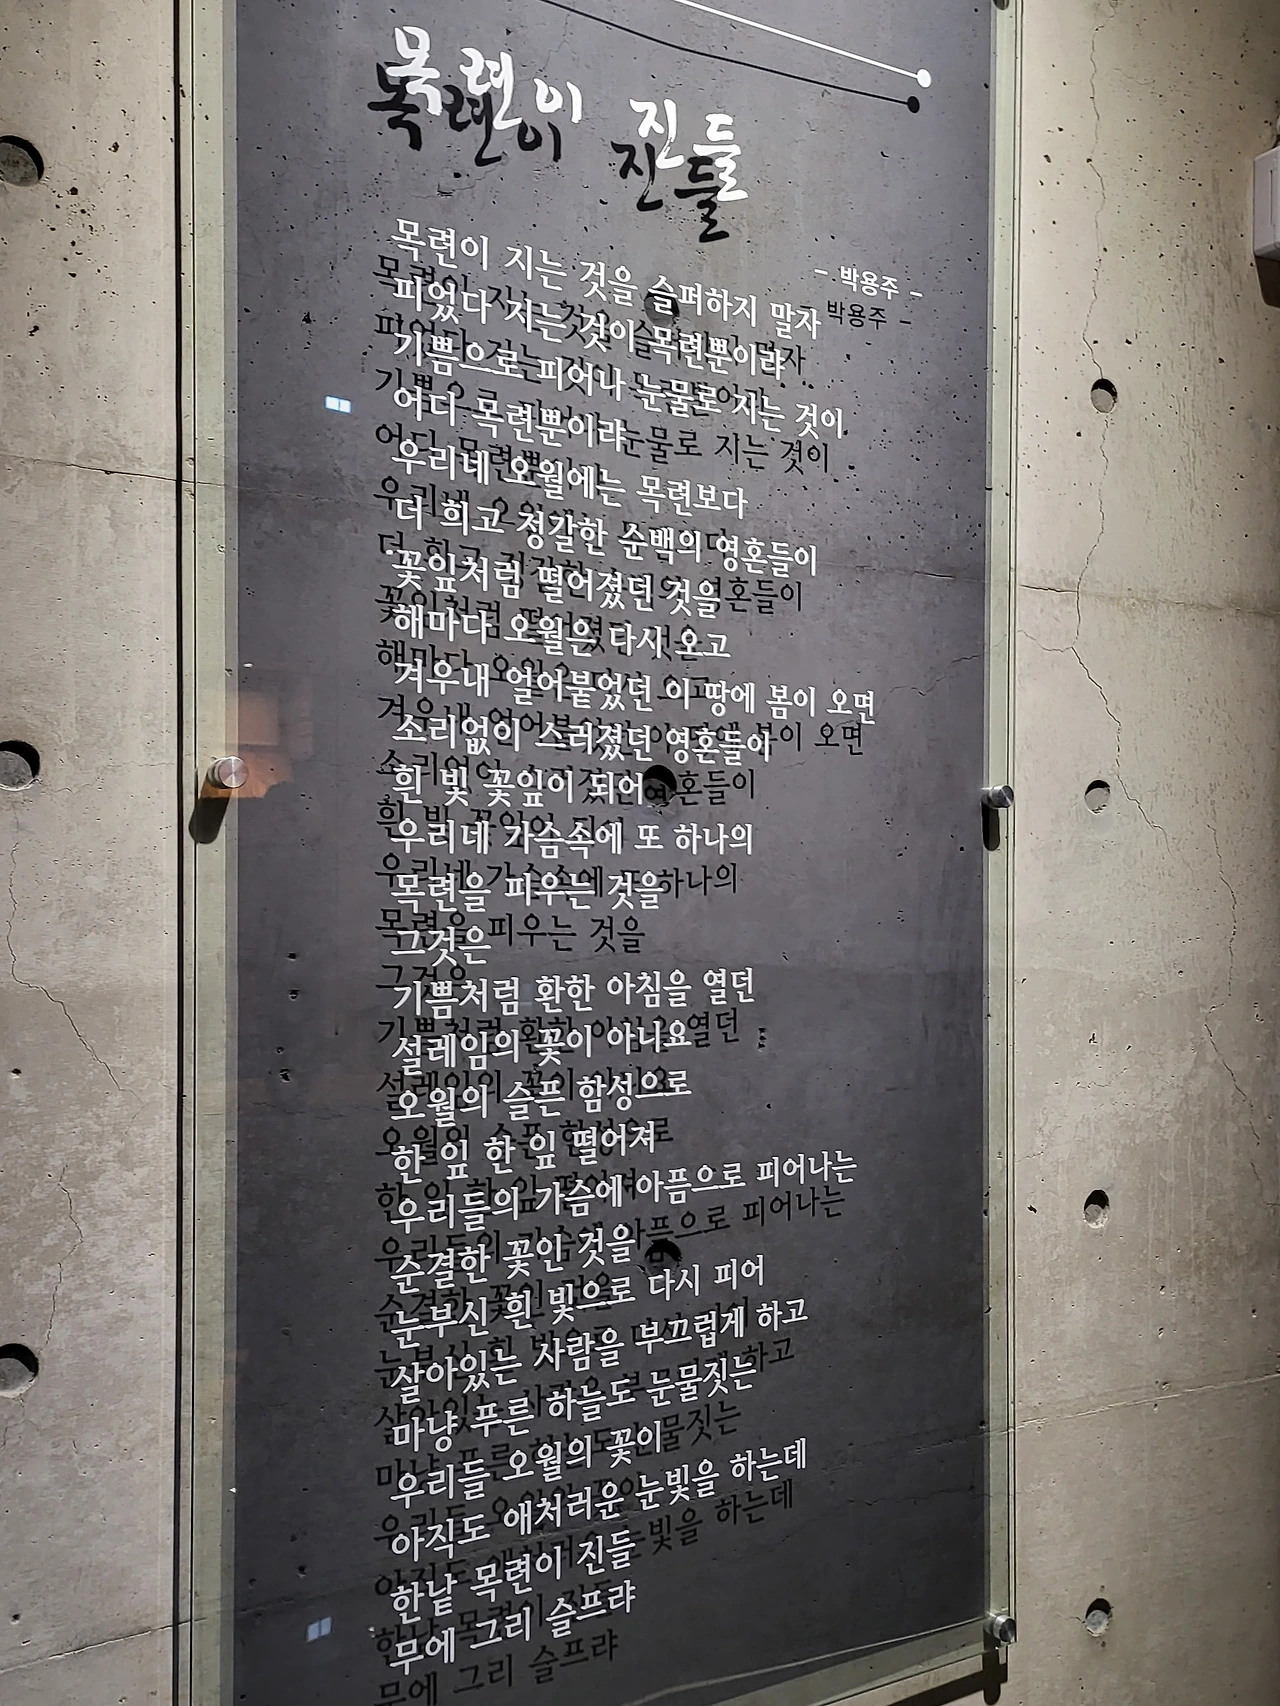 목련이 진들
- 박용주 -
목련이 지는 것을 슬퍼하지 말자
피었다 지는 것이 목련뿐이랴
기쁨으로 피어나 눈물로 지는 것이
어디 목련뿐이랴
우리네 오월에는 목련보다
더 희고 정갈한 순백의 영혼들이
꽃잎처럼 떨어졌던 것을
해마다 오월은 다시 오고
겨우내 얼어붙었던 이 땅에 봄이 오면
소리없이 스러졌던 영혼들이
흰 빛 꽃잎이 되어
우리네 가슴속에 또 하나의
목련을 피우는 것을
그것은
기쁨처럼 환한 아침을 열던
설레임의 꽃이 아니요
오월의 슬픈 함성으로
한 잎 한 잎 떨어져
우리들의 가슴에 아픔으로 피어나는
순결한 꽃인 것을
눈부신 흰 빛으로 다시 피어
살아있는 사람을 부끄럽게 하고
마냥 푸른 하늘도 눈물짓는
우리들 오월의 꽃이
아직도 애처러운 눈빛을 하는데
한낱 목련이 진들
무에 그리 슬프랴